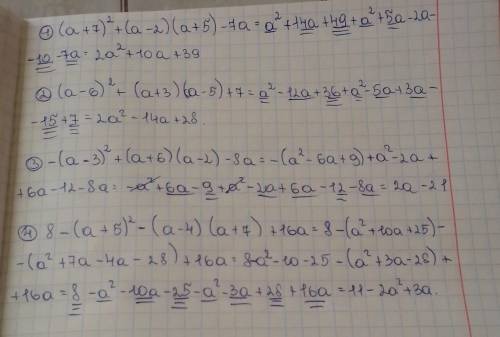 ① (a+7)²+(a-2)(a+5)-7a=a²+14a+49+a²+5a-2a-
-10-7a=2a²+10a+39
② (a-6)²+(a+3)(a-5)+7=a²-12a+36+a²-5a+3a-
-15+7=2a²-14a+28.
③ -(a-3)²+(a+6)(a-2)-8a=-(a²-6a+9)+a²-2a+
+6a-12-8a=-a²+6a-9+a²-2a+6a-12-8a=2a-21
④ 8-(a+5)²-(a-4)(a+7)+16a=8-(a²+10a+25)-
-(a²+7a-4a-28)+16a=8-a²-10-25-(a²+3a-28)+
+16a=8-a²-10a-25-a²-3a+28+16a=11-2a²+3a.